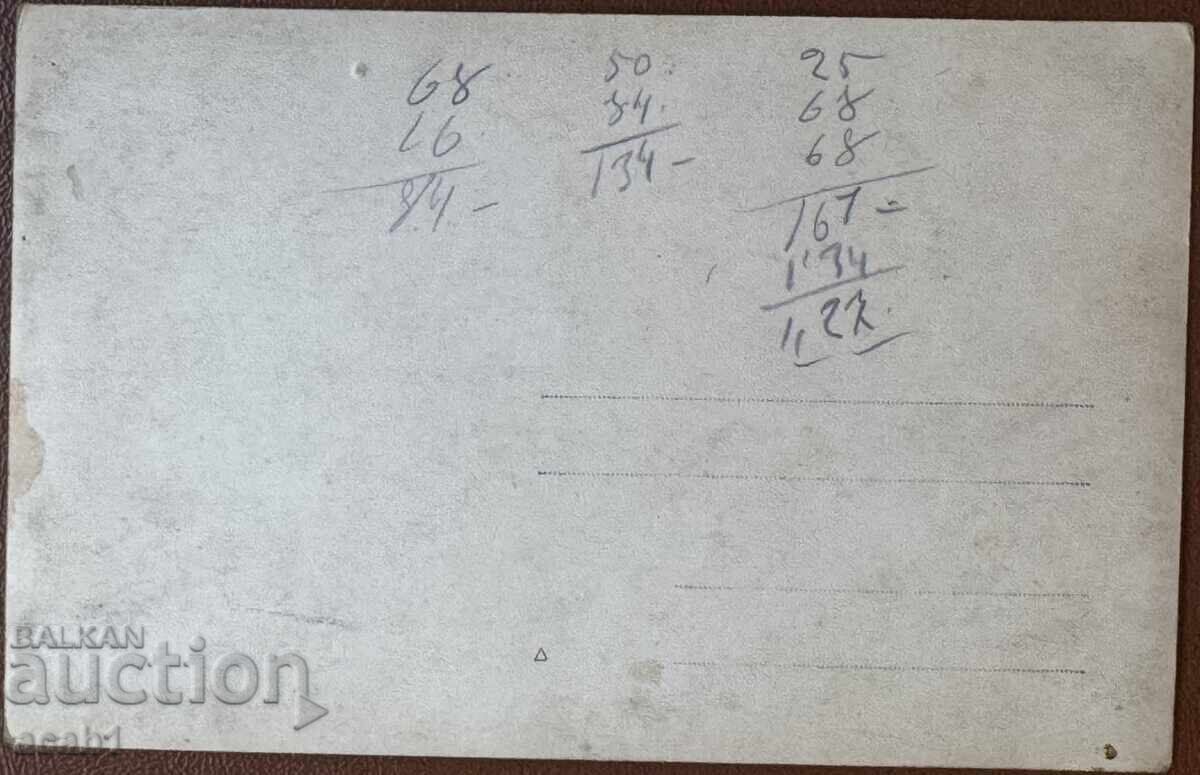 68
16
84.-
50.
84.
134-
25
68
68
161=
134
27.
BALKAN
auction
acab1